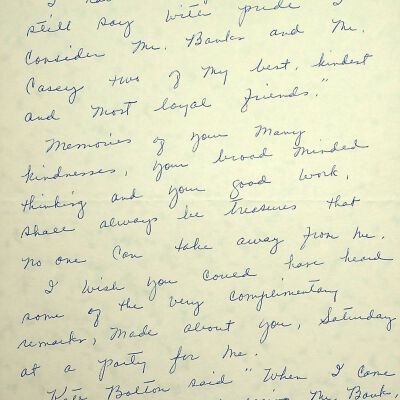 still say with pride I
Consider Mr. Banks and Mr.
Casey two of my best, kindest
and most loyal friends."
Memories of your many
kindnesses, your broad minded
thinking and your good work,
shall always be treasures that
no one can take away from me.
I wish you could have heard
some of the very complimentary
remarks, made about you, Saturday
at a party for me.
Bolton said "When I come
Mr. Banks,